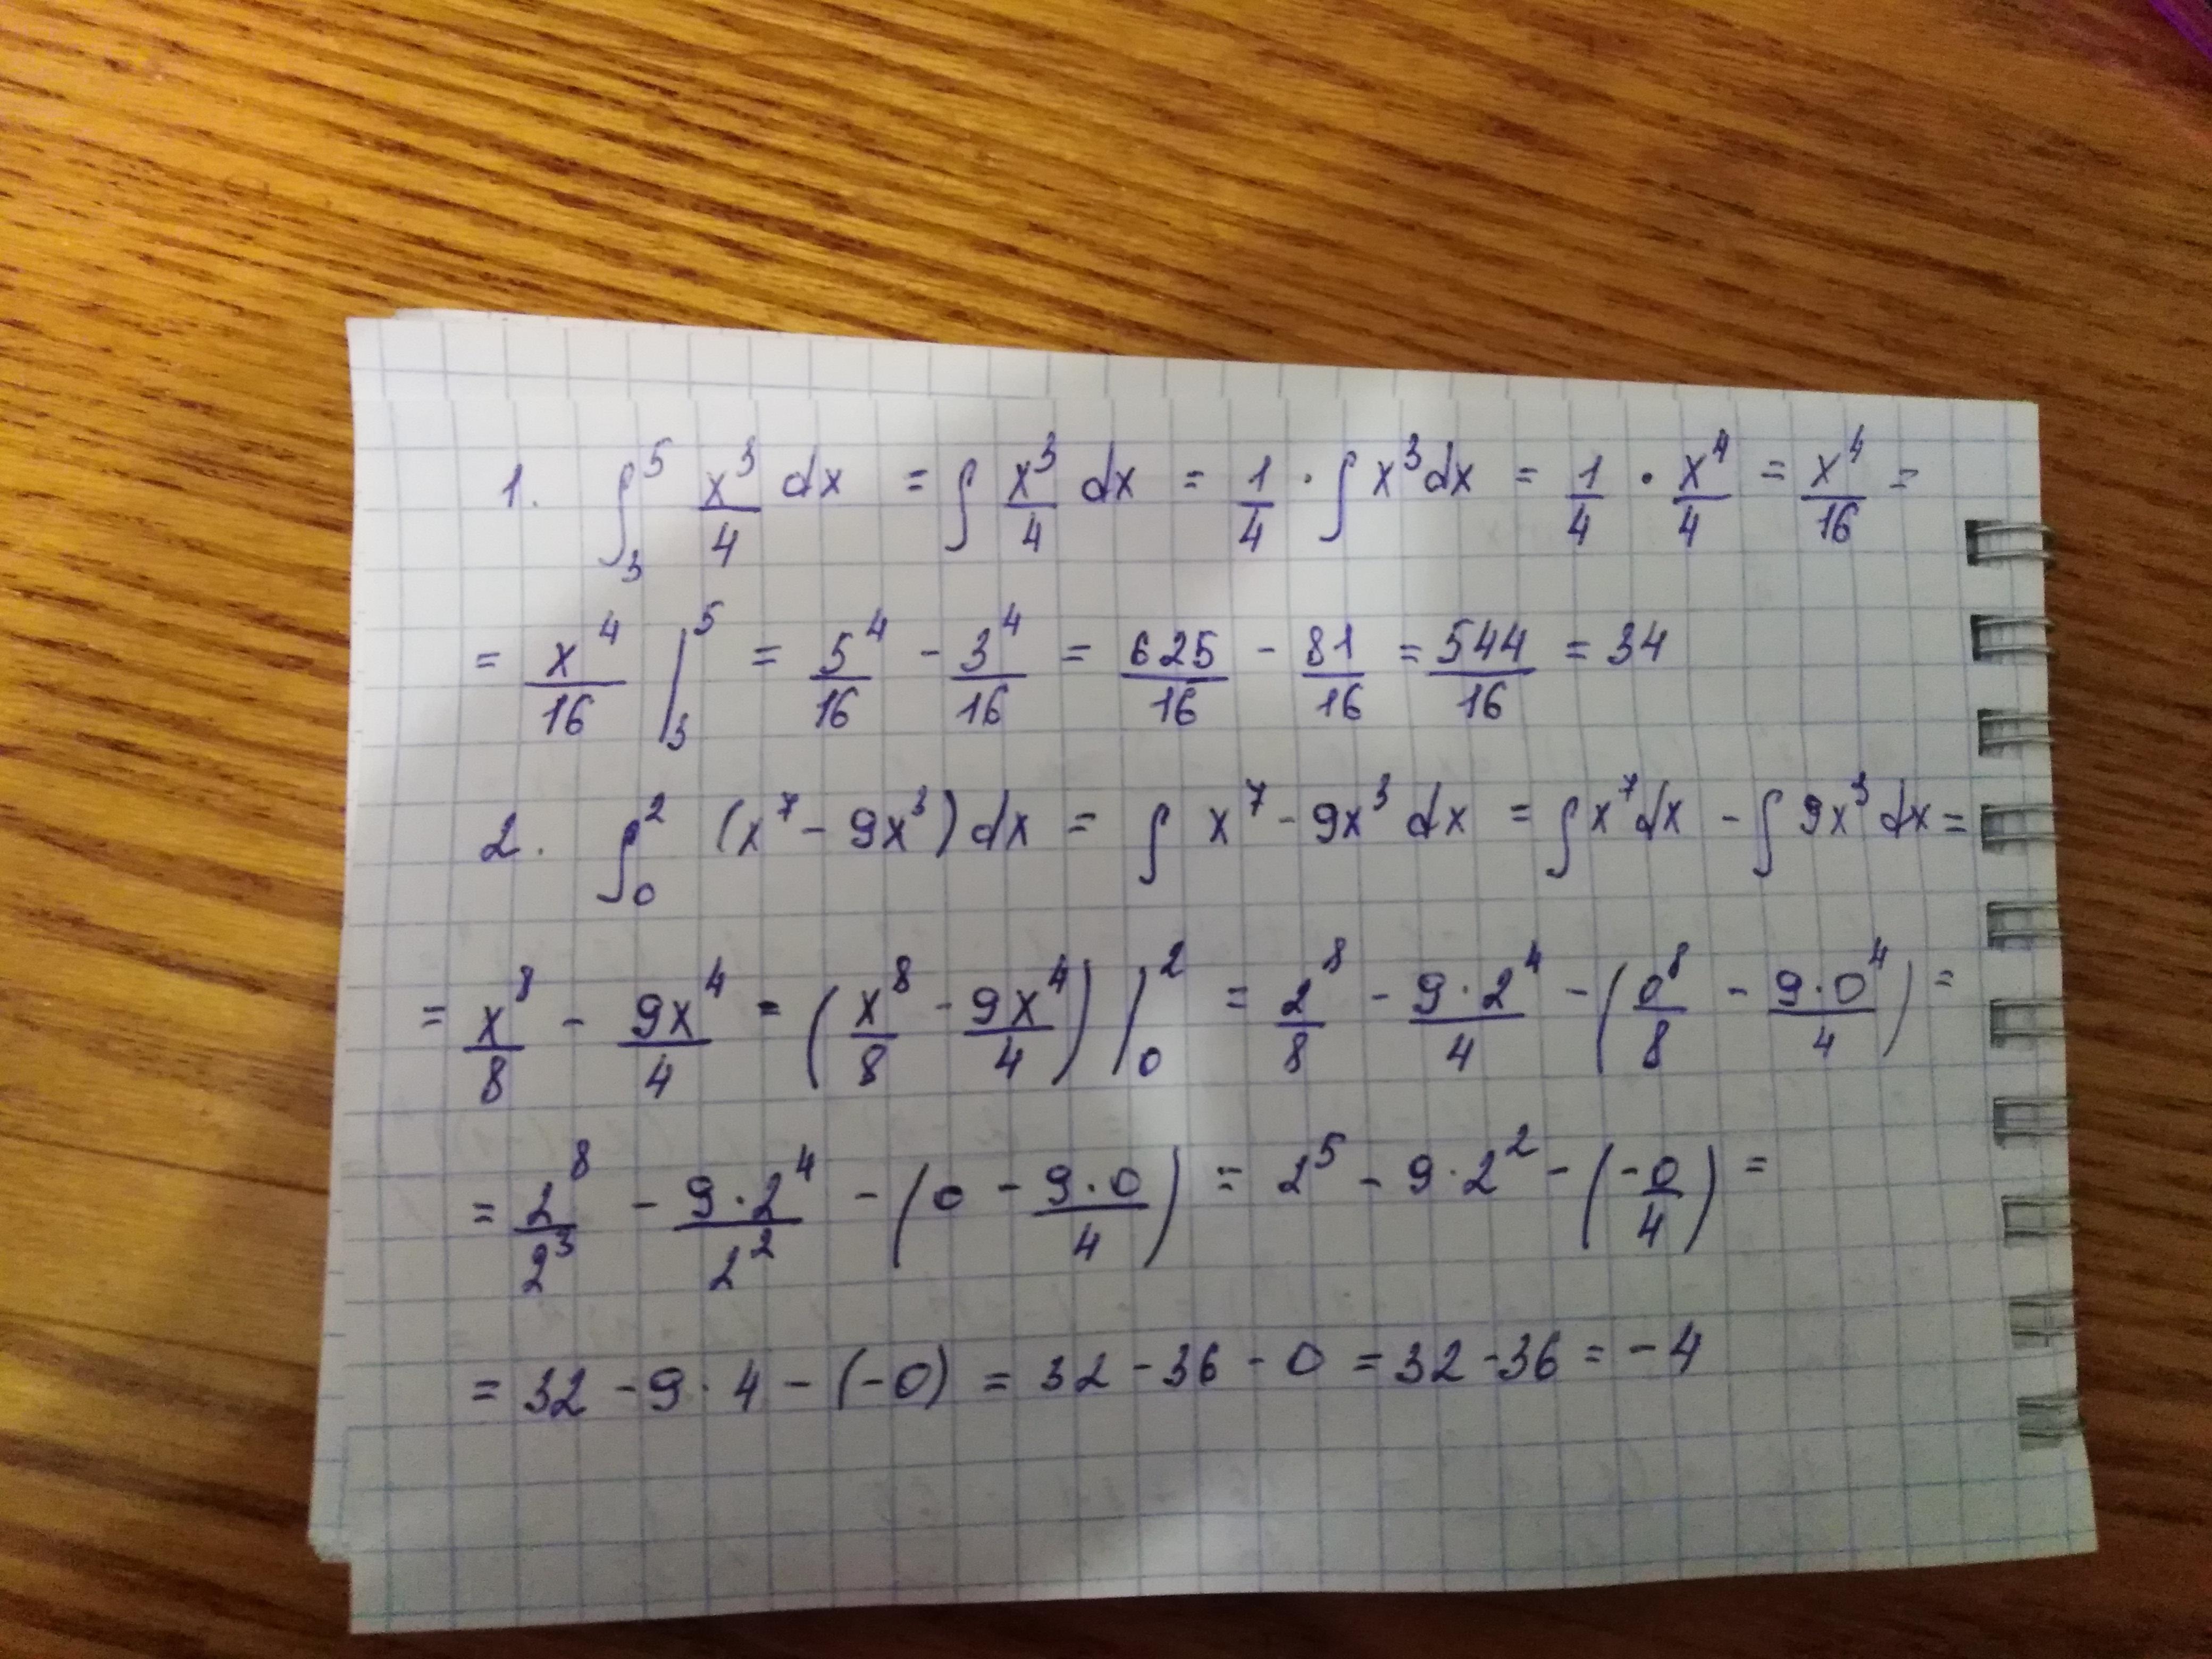 1. ∫₃⁵ x³/4 dx = ∫ x³/4 dx = 1/4 · ∫ x³dx = 1/4 · x⁴/4 = x⁴/16 =
= x⁴/16 |₃⁵ = 5⁴/16 - 3⁴/16 = 625/16 - 81/16 = 544/16 = 34
2. ∫₀² (x⁷ - 9x³) dx = ∫ x⁷ - 9x³ dx = ∫ x⁷dx - ∫ 9x³ dx =
= x⁸/8 - 9x⁴/4 = (x⁸/8 - 9x⁴/4) |₀² = 2⁸/8 - 9·2⁴/4 - (0⁸/8 - 9·0⁴/4) =
= 2⁸/2³ - 9·2⁴/2² - (0 - 9·0/4) = 2⁵ - 9·2² - (-0/4) =
= 32 - 9·4 - (-0) = 32 - 36 - 0 = 32 - 36 = -4